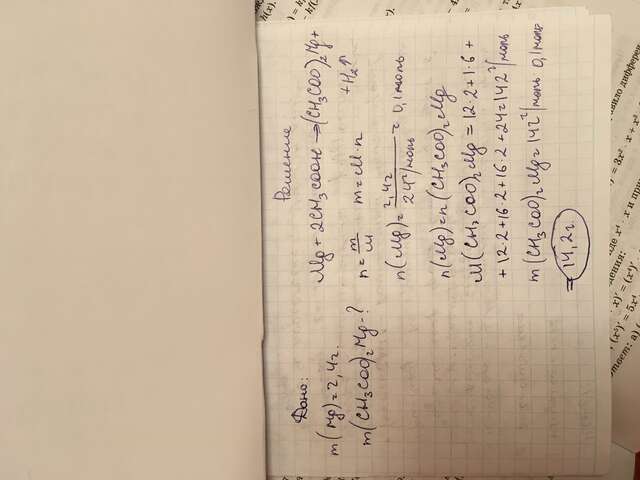 Дано:
m(Mg)=2,4г.
m(CH3COO)2Mg-?
Решение
Mg+2CH3COOH→(CH3COO)2Mg+
+H2↑
n=m/M m=M·n
n(Mg)=2,4г/24г/моль=0,1моль
n(Mg)=n(CH3COO)2Mg
M(CH3COO)2Mg=12·2+1·6+
+12·2+16·2+16·2+24=142г/моль
m(CH3COO)2Mg=142г/моль·0,1моль
=14,2г.